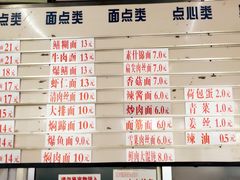 点类 面点类 面点类 点心类
21元 鳝糊面 13元
21元 牛肉面 13元 素什锦面 7.0元
18元 爆鳝面 13元
17元 虾仁面 13元 香菇面 7.0元
17元 清肉丝面 10元 辣酱面 6.0元 荷包蛋 2.0元
15元 大排面 10元 炒肉面 6.0元 青菜 1.0元
14元 焖蹄面 10元 面筋面 6.0元 姜丝 1.0元
14元 爆鱼面 9.0元 雪菜肉丝面 6.0元 辣油 0.5元
14元 焖肉面 10元 鲜肉大馄饨 8.0元